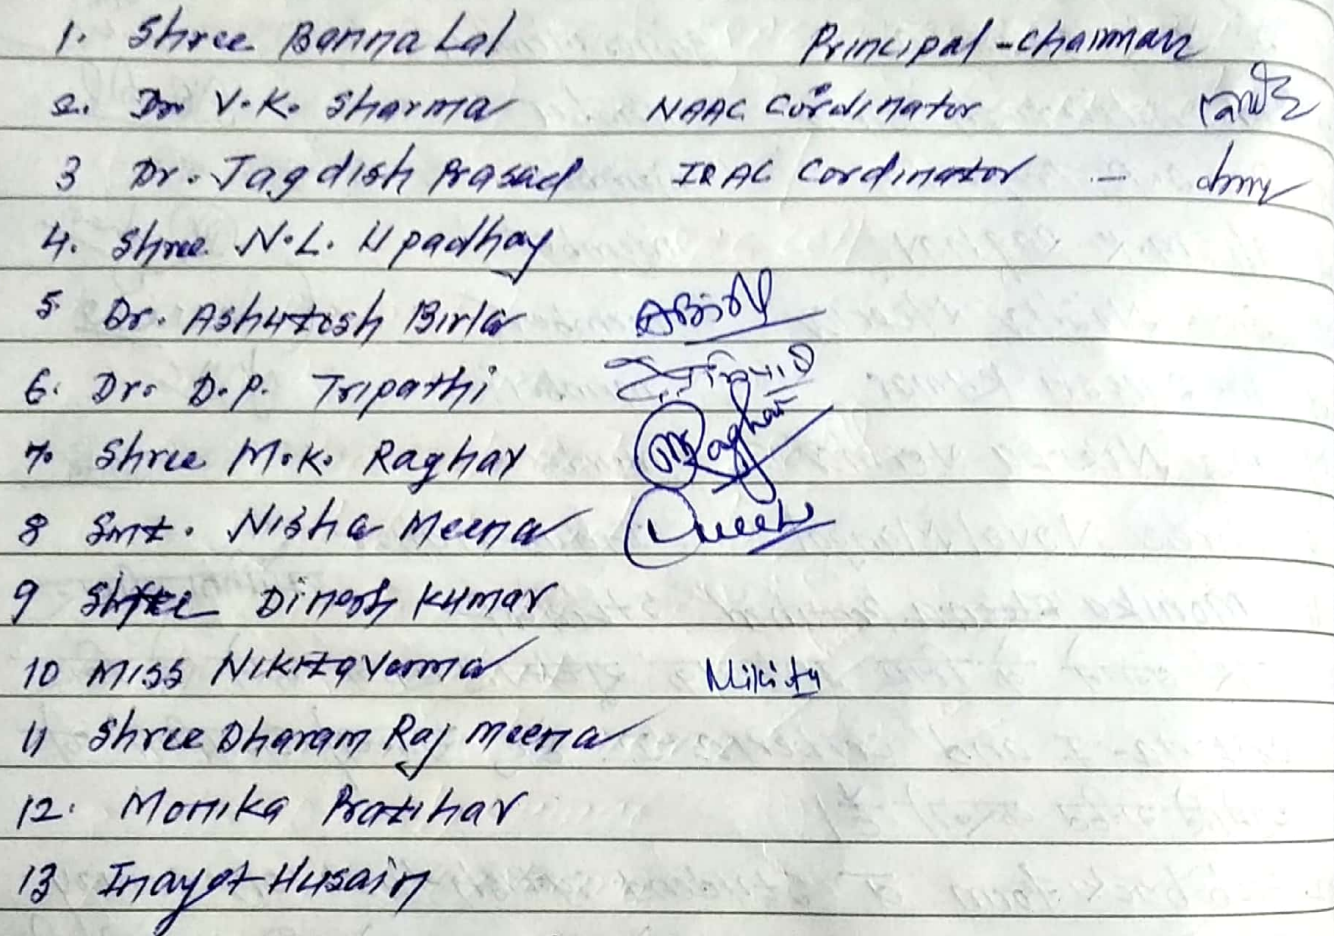 1. Shree Banna Lal Principal-chairman
2. Dr V.K. Sharma NAAC Coordinator
3 Dr. Jagdish Prasad IQAC Cordinator -
4. Shree N.L. Upadhay
5 Dr. Ashutosh Birla
6. Dr. D.P. Tripathi
7. Shree M.K. Raghav Raghav
8 Smt. Nisha Meena
9 Shree Dinesh Kumar
10 Miss Nikita Verma Nikita
11 Shree Dharam Raj Meena
12. Monika Pratihar
13 Inayat Husain